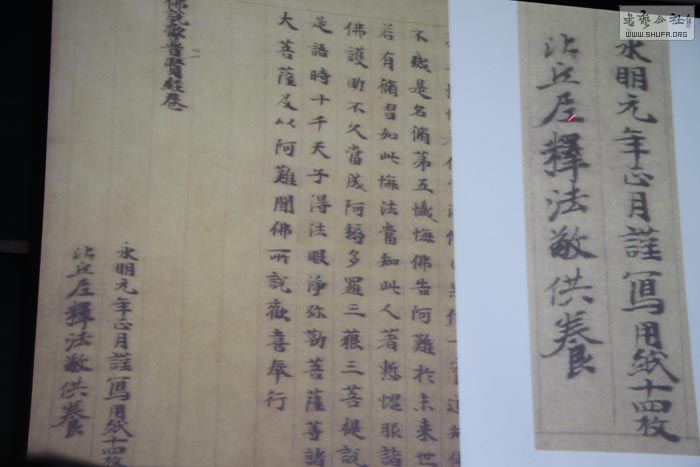 書藝公社
WWW.SHUFA.ORG
永明元年正月謹寫用紙十四枚
比丘尼釋法敬供養
不滅是名脩第五懺悔佛告阿難於未來世
若有脩習如此悔法當知此人著慙愧服諸
佛護助不久當成阿耨多羅三藐三菩提說
是語時十千天子得法眼淨弥勒菩薩等諸
大菩薩及以阿難聞佛所說歡喜奉行
佛說觀普賢經卷
永明元年正月謹寫用紙十四枚
比丘尼釋法敬供養